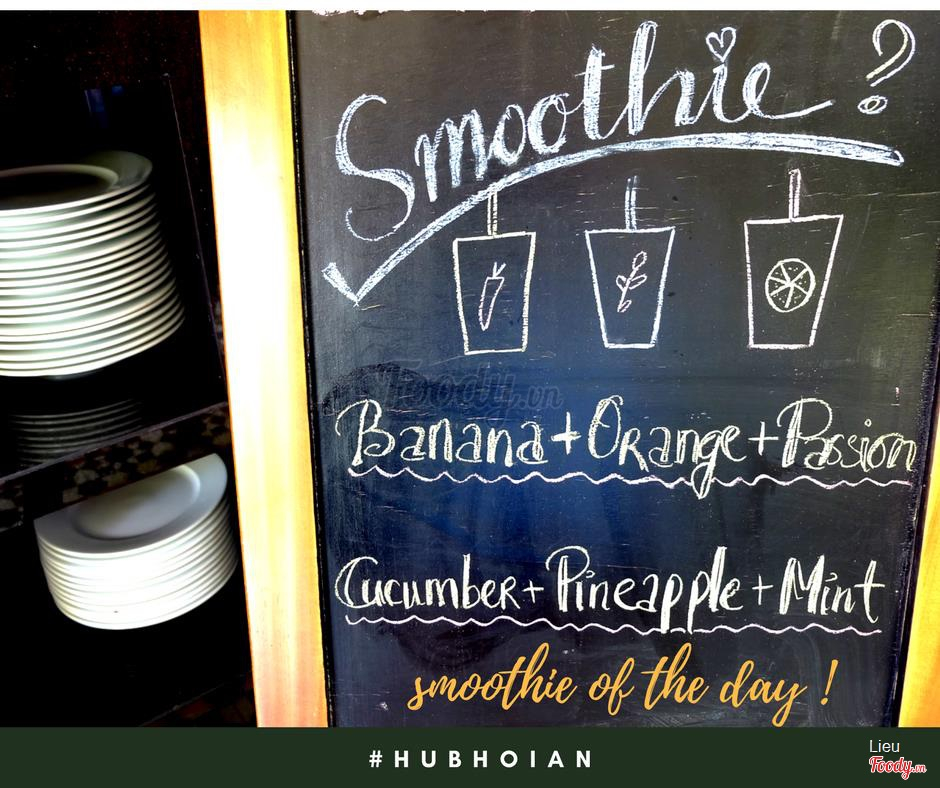 Smoothie?
Foody.vn
Banana + Orange + Passion
Cucumber + Pineapple + Mint
smoothie of the day !
#HUBHOIAN
Lieu
Foody.vn